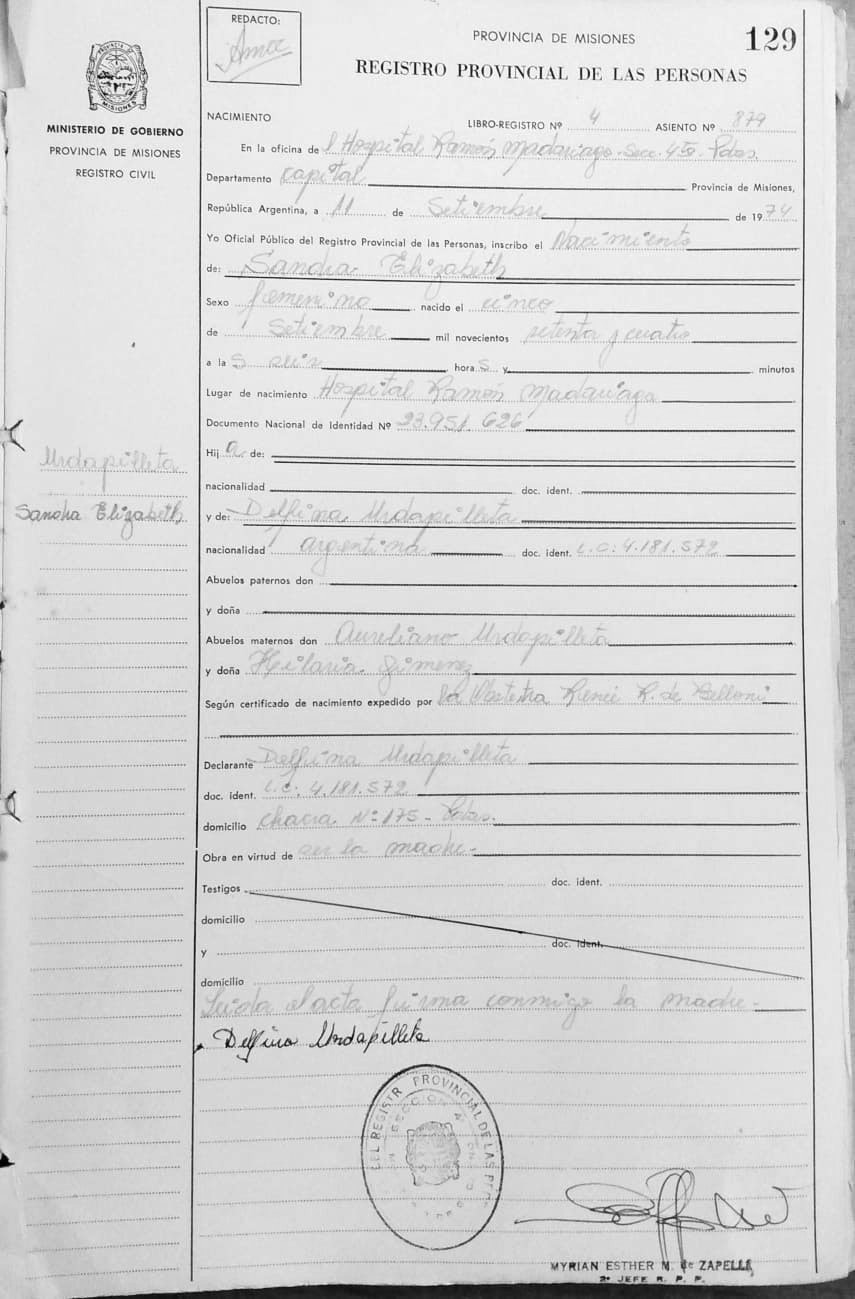 REDACTO:
PROVINCIA DE MISIONES
129
REGISTRO PROVINCIAL DE LAS PERSONAS
PROVINCIA DE
MISIONES
MINISTERIO DE GOBIERNO
PROVINCIA DE MISIONES
REGISTRO CIVIL
NACIMIENTO
LIBRO-REGISTRO Nº 4 ASIENTO Nº 879
En la oficina del Hospital Ramón Madariaga - Secc. 4ta - Pdas.
Departamento Capital Provincia de Misiones,
República Argentina, a 11 de Setiembre de 1974
Yo Oficial Público del Registro Provincial de las Personas, inscribo el Nacimiento
de: Sandra Elizabeth
Sexo femenino nacido el cinco
de Setiembre mil novecientos setenta y cuatro
a las seis horas y minutos
Lugar de nacimiento Hospital Ramón Madariaga
Documento Nacional de Identidad Nº 23.951.626
Hija de:
nacionalidad doc. ident.
Urdapilleta
Sandra Elizabeth
y de: Delfina Urdapilleta
nacionalidad argentina doc. ident. L.C. 4.181.572
Abuelos paternos don
y doña
Abuelos maternos don Aureliano Urdapilleta
y doña Hilaria Gimenez
Según certificado de nacimiento expedido por la Obstetra Reneé R. de Belloni
Declarante Delfina Urdapilleta
doc. ident. L.C. 4.181.572
domicilio chacra Nº 175 - Pdas.
Obra en virtud de ser la madre-
Testigos doc. ident.
domicilio
y doc. ident.
domicilio
Leida el acta firma conmigo la madre-
Delfina Urdapilleta
DEL REGISTR PROVINCIAL DE LAS PER
SECCION 4
MYRIAN ESTHER M. de ZAPELLI
2º JEFE R. P. P.